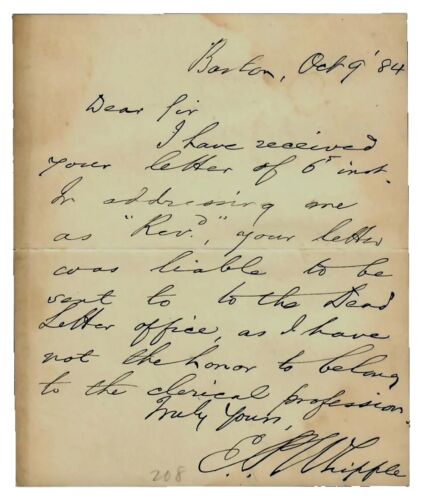 Boston, Oct 9' 84
Dear Sir
I have received
your letter of 6th inst.
In addressing me
as "Revd", your letter
was liable to be
sent to to the Dead
Letter office, as I have
not the honor to belong
to the clerical profession.
Truly Yours,
E. P. Whipple
208